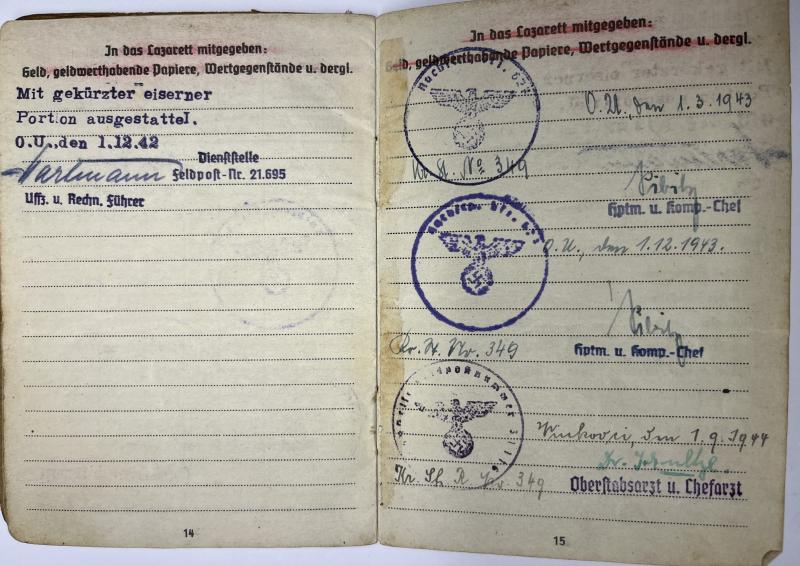 In das Lazarett mitgegeben:
Geld, geldwerthabende Papiere, Wertgegenstände u. dergl.
Mit gekürzter eiserner
Portion ausgestattet.
O.U.,den 1.12.42
Dienststelle
Hartmann Feldpost-Nr. 21.695
Uffz. u. Rechn. Führer
14
In das Lazarett mitgegeben:
Geld, geldwerthabende Papiere, Wertgegenstände u. dergl.
O.U., den 1.3.1943
Kr. St. No 349
Hptm. u. Komp.-Chef
O.U., den 1.12.1943.
Kr. St. Nr. 349
Hptm. u. Komp.-Chef
den 1.9.1944
349
Oberstabsarzt u. Chefarzt
15